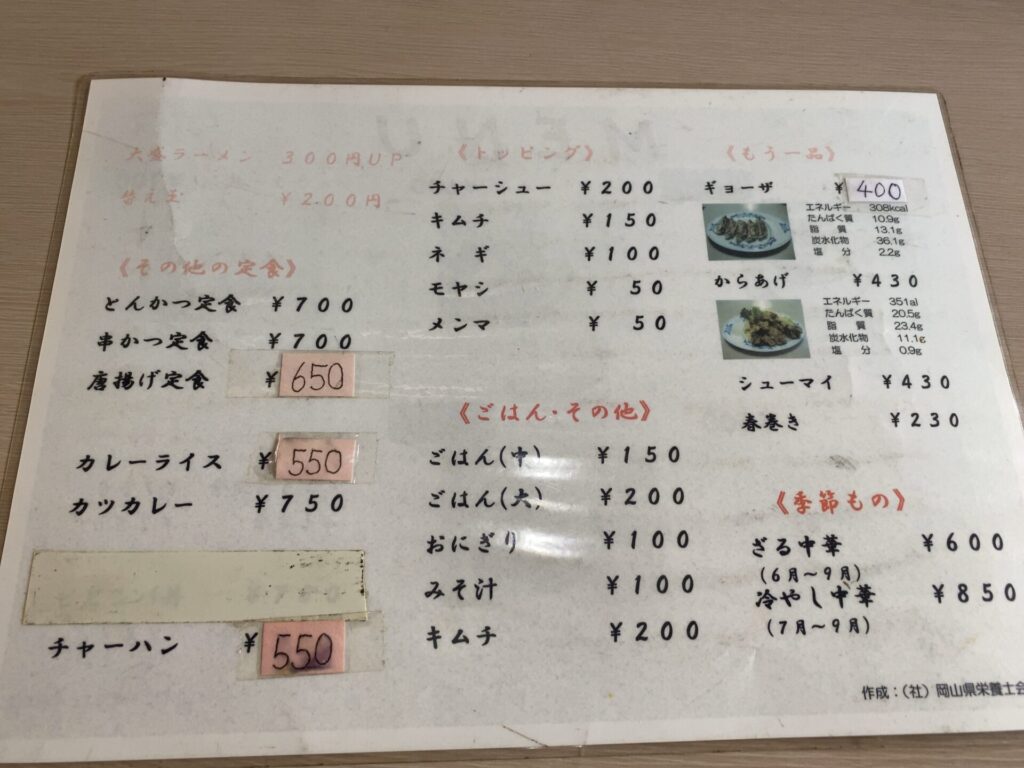 MENU
大盛ラーメン ３００円UP
替え玉 ￥２００円
《その他の定食》
とんかつ定食 ￥７００
串かつ定食 ￥７００
唐揚げ定食 ￥650
カレーライス ￥550
カツカレー ￥７５０
チャーハン ￥550
《トッピング》
チャーシュー ￥２００
キムチ ￥１５０
ネギ ￥１００
モヤシ ￥５０
メンマ ￥５０
《ごはん・その他》
ごはん(中) ￥１５０
ごはん(大) ￥２００
おにぎり ￥１００
みそ汁 ￥１００
キムチ ￥２００
《もう一品》
ギョーザ ￥400
エネルギー 308kcal
たんぱく質 10.9g
脂質 13.1g
炭水化物 36.1g
塩分 2.2g
からあげ ￥４３０
エネルギー 351al
たんぱく質 20.5g
脂質 23.4g
炭水化物 11.1g
塩分 0.9g
シューマイ ￥４３０
春巻き ￥２３０
《季節もの》
ざる中華 ￥６００
(６月～９月)
冷やし中華 ￥８５０
(７月～９月)
作成：（社）岡山県栄養士会